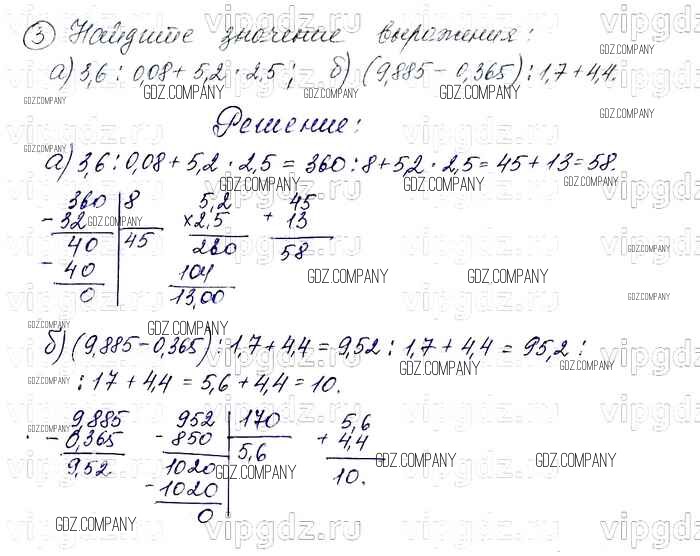 ③ Найдите значение выражения:
а) 3,6 : 0,08 + 5,2 · 2,5; б) (9,885 – 0,365) : 1,7 + 4,4.
Решение:
а) 3,6 : 0,08 + 5,2 · 2,5 = 360 : 8 + 5,2 · 2,5 = 45 + 13 = 58.
360 | 8
- 32 | 45
40
- 40
0
5,2
× 2,5
260
104
13,00
45
+ 13
58
б) (9,885 – 0,365) : 1,7 + 4,4 = 9,52 : 1,7 + 4,4 = 95,2 :
: 17 + 4,4 = 5,6 + 4,4 = 10.
9,885
- 0,365
9,52
952 | 170
- 850 | 5,6
1020
- 1020
0
5,6
+ 4,4
10.
vipgdz.ru
GDZ.COMPANY